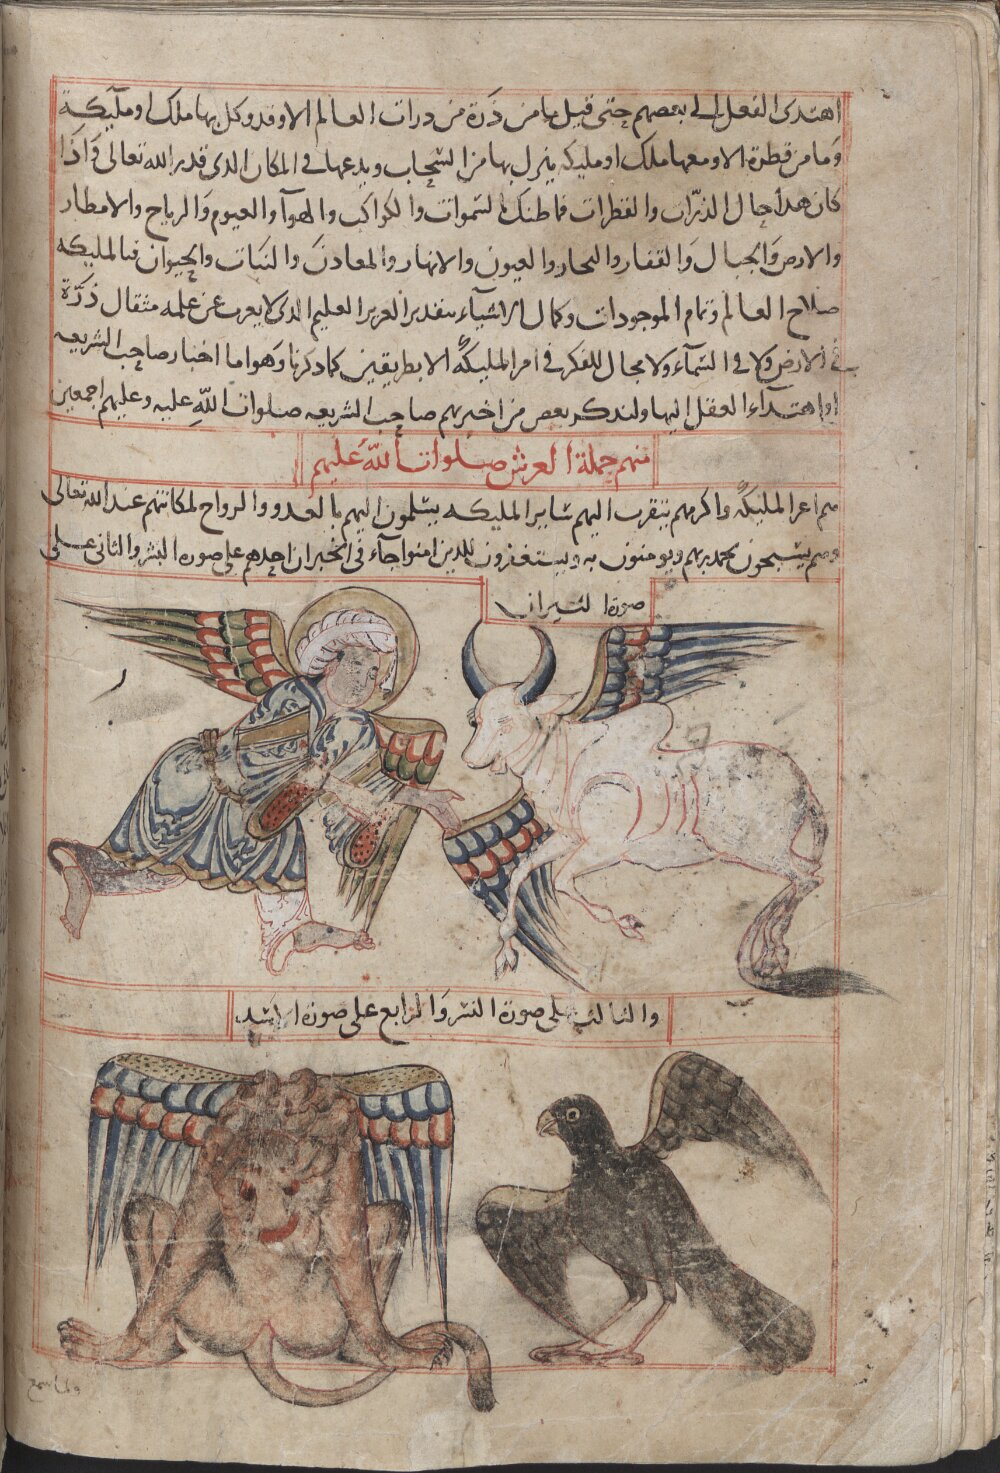 اهتدى الفعل الى بعضهم حتى قيل ما من ذرة من ذرات العالم الا وقد وكل بها ملك او مليكة
وما من قطرة الا ومعها ملك او مليكه ينزل بها من السحاب ويدعها في المكان الذي قدر الله تعالى واذا
كان هذا حال الذرات والقطرات فما ظنك بالسموات والكواكب والهوآ والغيوم والرياح والامطار
والارض والجبال والقفار والبحار والعيون والانهار والمعادن والنبات والحيوان فبالمليكه
صلاح العالم وتمام الموجودات وكمال الاشيآء بتقدير العزيز العليم الذى لا يعزب عن علمه مثقال ذرة
في الارض ولا في السمآء ولا مجال للفكر في امر المليكة الا بطريقين كما ذكرنا وهو اما اخبار صاحب الشريعه
او اهتدآء العقل اليها ولنذكر بعض من اخبر بهم صاحب الشريعه صلوات الله عليه وعليهم اجمعين
منهم حملة العرش صلوات الله عليهم
هم اعز المليكة واكرمهم يتقرب اليهم سائر المليكه يسلمون اليهم بالغدو والرواح لمكانتهم عند الله تعالى
وهم يسبحون بحمد ربهم ويومنون به ويستغفرون للذين امنوا جآء في الخبر ان احدهم على صوره البشر والثاني على
صورة الثيران
والثالث على صورة النسر والرابع على صورة الاسد